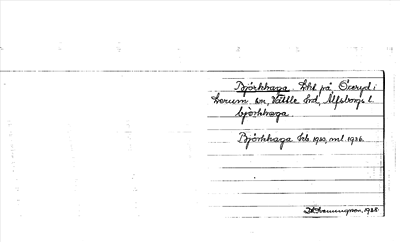 Björkhaga, lht på Öxeryd i
Lerum sn, Vättle hd, Älfsborgs l.
björkhaga.
Björkhaga hb. 1930, ml. 1936.
1938